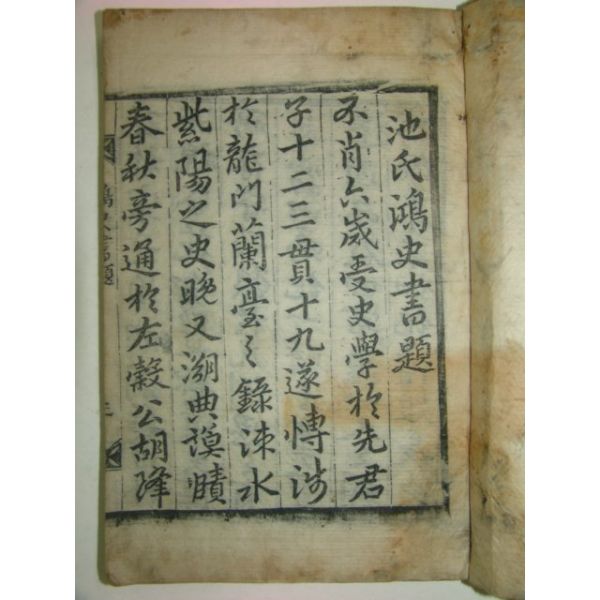 池氏鴻史書題
不肖六歲受史學於先君
子十二三貫十九遂愽涉
於龍門蘭臺之錄涑水
紫陽之史晩又溯典謨賾
春秋旁通於左穀公胡降
鴻史書題